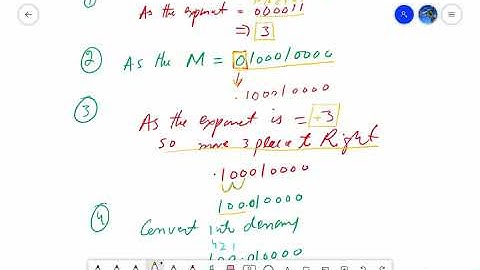 ①
As the exponent = 000011
⇒ 3
② As the M = 0100010000
.100010000
③
As the exponent is = 3
so move 3 place to Right
.100010000
100.010000
④
Convert into denary
4 2 1
100.010000